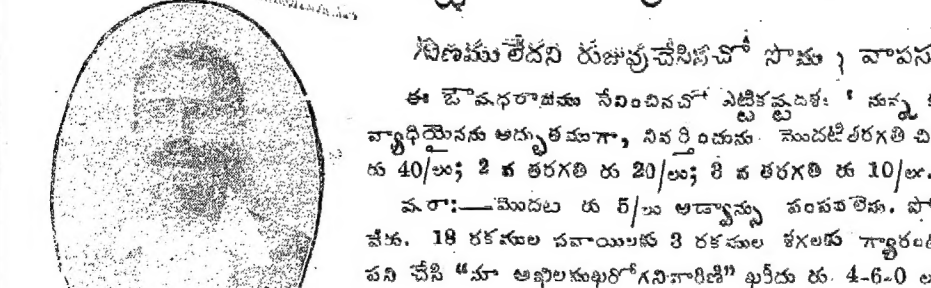 గుణము లేదని రుజువుచేసినచో సొమ్ము వాపస
ఈ ఔషధరాజము సేవించినచో ఎట్టికష్టదశ నున్న
వ్యాధియైనను అద్భుతముగా, నివర్తించును. మొదటితరగతి చి
రు 40/లు; 2 వ తరగతి రు 20/లు; 3 వ తరగతి రు 10/లు.
మ.రా:—మొదట రు 5/లు అడ్వాన్సు పంపవలెను. పో
వేరు. 18 రకముల సవాయిలకు 3 రకముల శగలకు గ్యారంటీ
పని చేసే "మా అఖిలముఖరోగనివారిణి" ఖరీదు రు. 4-6-0 ల